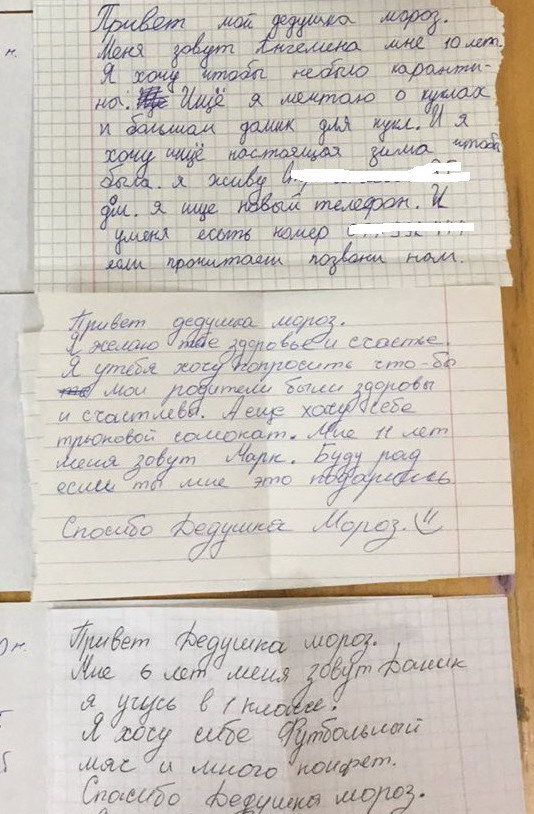 Привет мой дедушка мороз.
Меня зовут Ангелена мне 10 лет.
Я хочу чтобы небыло каранти-
на. Ищё я мечтаю о куклах
и большом домик для кукл. И я
хочу ищё настоящая зима чтобы
была. я живу
дм. я ище новый телефон. И
уменя есть номер
если прочитаеш позвони нам.
Привет дедушка мороз.
Я желаю тебе здоровье и счастье.
Я утебя хочу попросить что-бы
мои родители были здоровы
и счастлевы. А еще хочу себе
трюковой самокат. Мне 11 лет
меня зовут Марк. Буду рад
если ты мне это подаришь
Спасибо Дедушка Мороз.
Привет Дедушка мороз.
Мне 6 лет меня зовут Даник
я учусь в 1 классе.
Я хочу себе Футбольный
мяч и много конфет.
Спасибо Дедушка мороз.